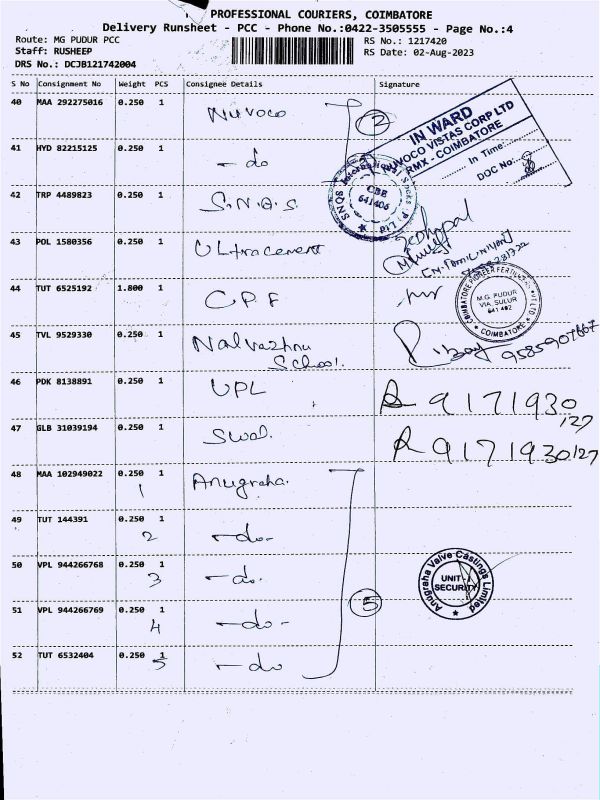 PROFESSIONAL COURIERS, COIMBATORE
Delivery Runsheet - PCC - Phone No.:0422-3505555 - Page No.:4
Route: MG PUDUR PCC
RS No.: 1217420
Staff: RUSHEEP
RS Date: 02-Aug-2023
DRS No.: DCJB121742004
S No Consignment No Weight PCS Consignee Details Signature
40 MAA 292275016 0.250 1 Nuvoco
2
IN WARD
NUVOCO VISTAS CORP LTD
RMX - COIMBATORE
In Time:
DOC No:
41 HYD 82215125 0.250 1 - do
CBE
641406
42 TRP 4489823 0.250 1 S.N.Q.S
43 POL 1580356 0.250 1 Ultracement
44 TUT 6525192 1.800 1 C.P.F
COIMBATORE PIONEER FERTILIZERS PVT LTD
M.G. PUDUR
VIA. SULUR
641 402
COIMBATORE
45 TVL 9529330 0.250 1 Nalvazhnu
School.
9585907667
46 PDK 8138891 0.250 1 UPL
9171930
127
47 GLB 31039194 0.250 1 Swal.
9171930127
48 MAA 102949022 0.250 1 Anugraha.
1
49 TUT 144391 0.250 1 -do-
2
50 VPL 944266768 0.250 1 -do.
3
Anugraha Valve Castings Limited
UNIT-I
SECURITY
51 VPL 944266769 0.250 1 -do-
4
5
52 TUT 6532404 0.250 1 -do
5